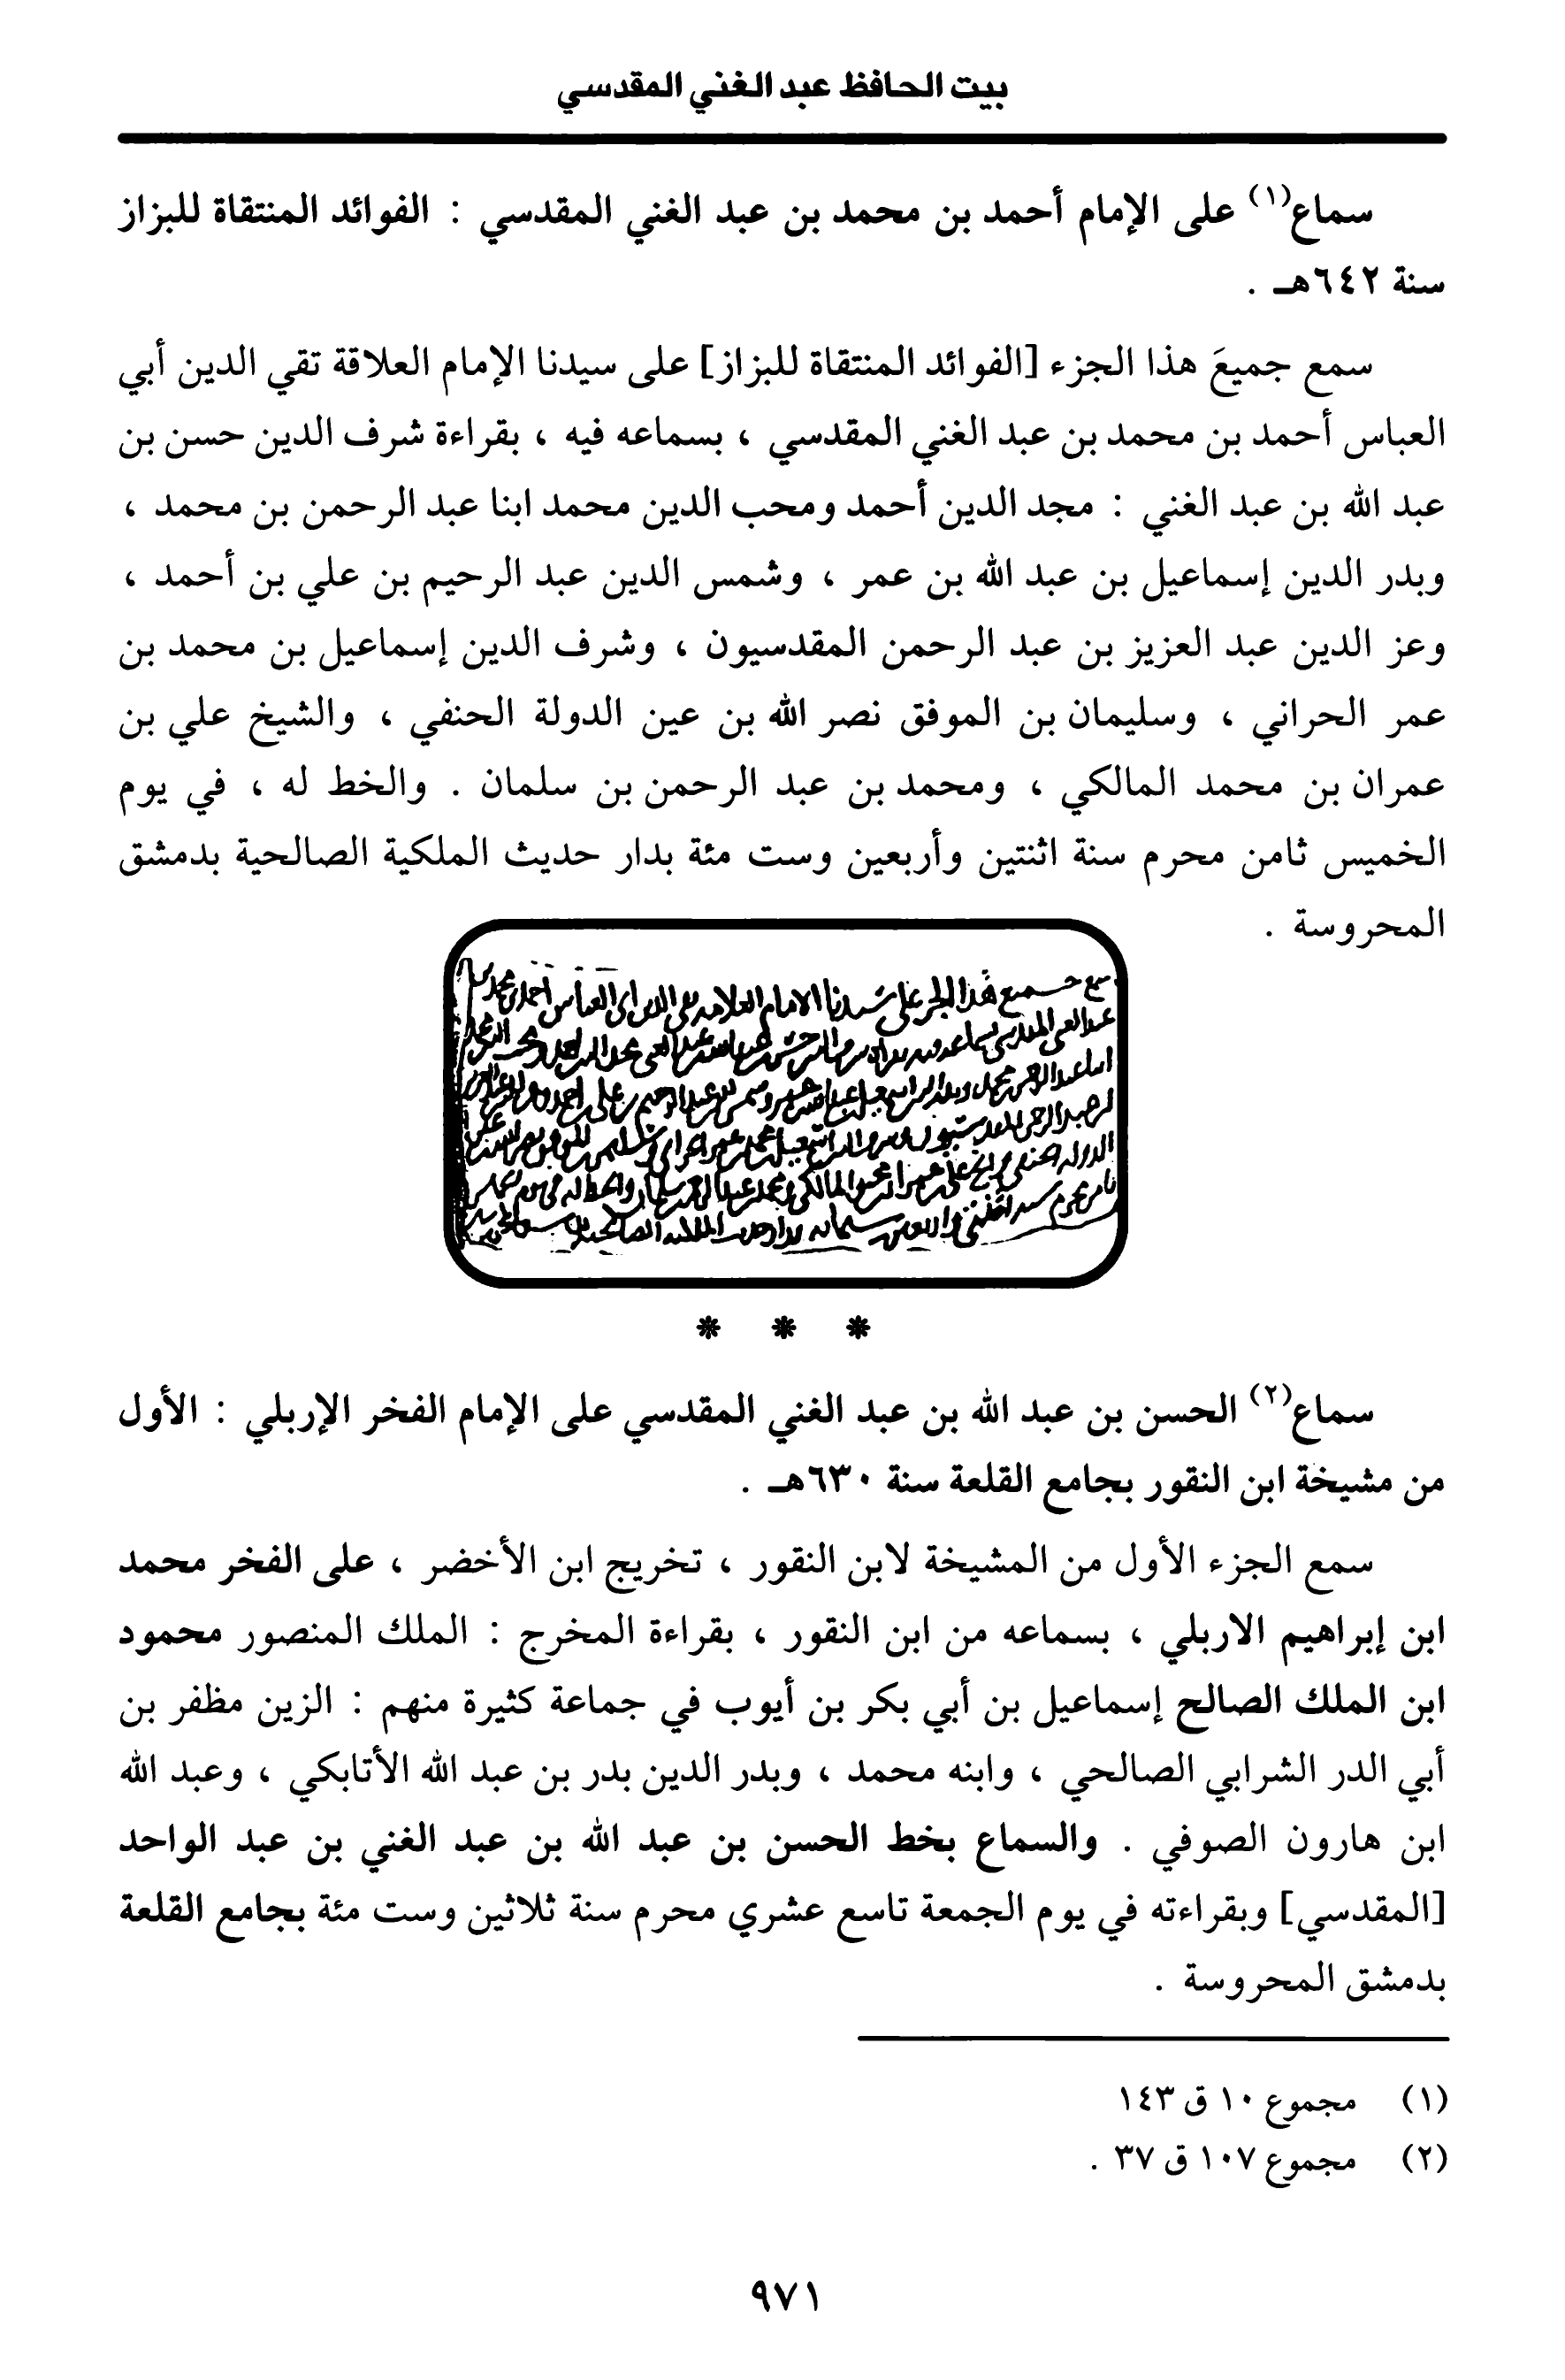 بيت الحافظ عبد الغني المقدسي
سماع(١) على الإمام أحمد بن محمد بن عبد الغني المقدسي : الفوائد المنتقاة للبزاز
سنة ٦٤٢هـ .
سمع جميعَ هذا الجزء [الفوائد المنتقاة للبزاز] على سيدنا الإمام العلاقة تقي الدين أبي
العباس أحمد بن محمد بن عبد الغني المقدسي ، بسماعه فيه ، بقراءة شرف الدين حسن بن
عبد الله بن عبد الغني : مجد الدين أحمد ومحب الدين محمد ابنا عبد الرحمن بن محمد ،
وبدر الدين إسماعيل بن عبد الله بن عمر ، وشمس الدين عبد الرحيم بن علي بن أحمد ،
وعز الدين عبد العزيز بن عبد الرحمن المقدسيون ، وشرف الدين إسماعيل بن محمد بن
عمر الحراني ، وسليمان بن الموفق نصر الله بن عين الدولة الحنفي ، والشيخ علي بن
عمران بن محمد المالكي ، ومحمد بن عبد الرحمن بن سلمان . والخط له ، في يوم
الخميس ثامن محرم سنة اثنتين وأربعين وست مئة بدار حديث الملكية الصالحية بدمشق
المحروسة .
* * *
سماع(٢) الحسن بن عبد الله بن عبد الغني المقدسي على الإمام الفخر الإربلي : الأول
من مشيخة ابن النقور بجامع القلعة سنة ٦٣٠هـ .
سمع الجزء الأول من المشيخة لابن النقور ، تخريج ابن الأخضر ، على الفخر محمد
ابن إبراهيم الاربلي ، بسماعه من ابن النقور ، بقراءة المخرج : الملك المنصور محمود
ابن الملك الصالح إسماعيل بن أبي بكر بن أيوب في جماعة كثيرة منهم : الزين مظفر بن
أبي الدر الشرابي الصالحي ، وابنه محمد ، وبدر الدين بدر بن عبد الله الأتابكي ، وعبد الله
ابن هارون الصوفي . والسماع بخط الحسن بن عبد الله بن عبد الغني بن عبد الواحد
[المقدسي] وبقراءته في يوم الجمعة تاسع عشري محرم سنة ثلاثين وست مئة بجامع القلعة
بدمشق المحروسة .
(١) مجموع ١٠ ق ١٤٣
(٢) مجموع ١٠٧ ق ٣٧ .
٩٧١